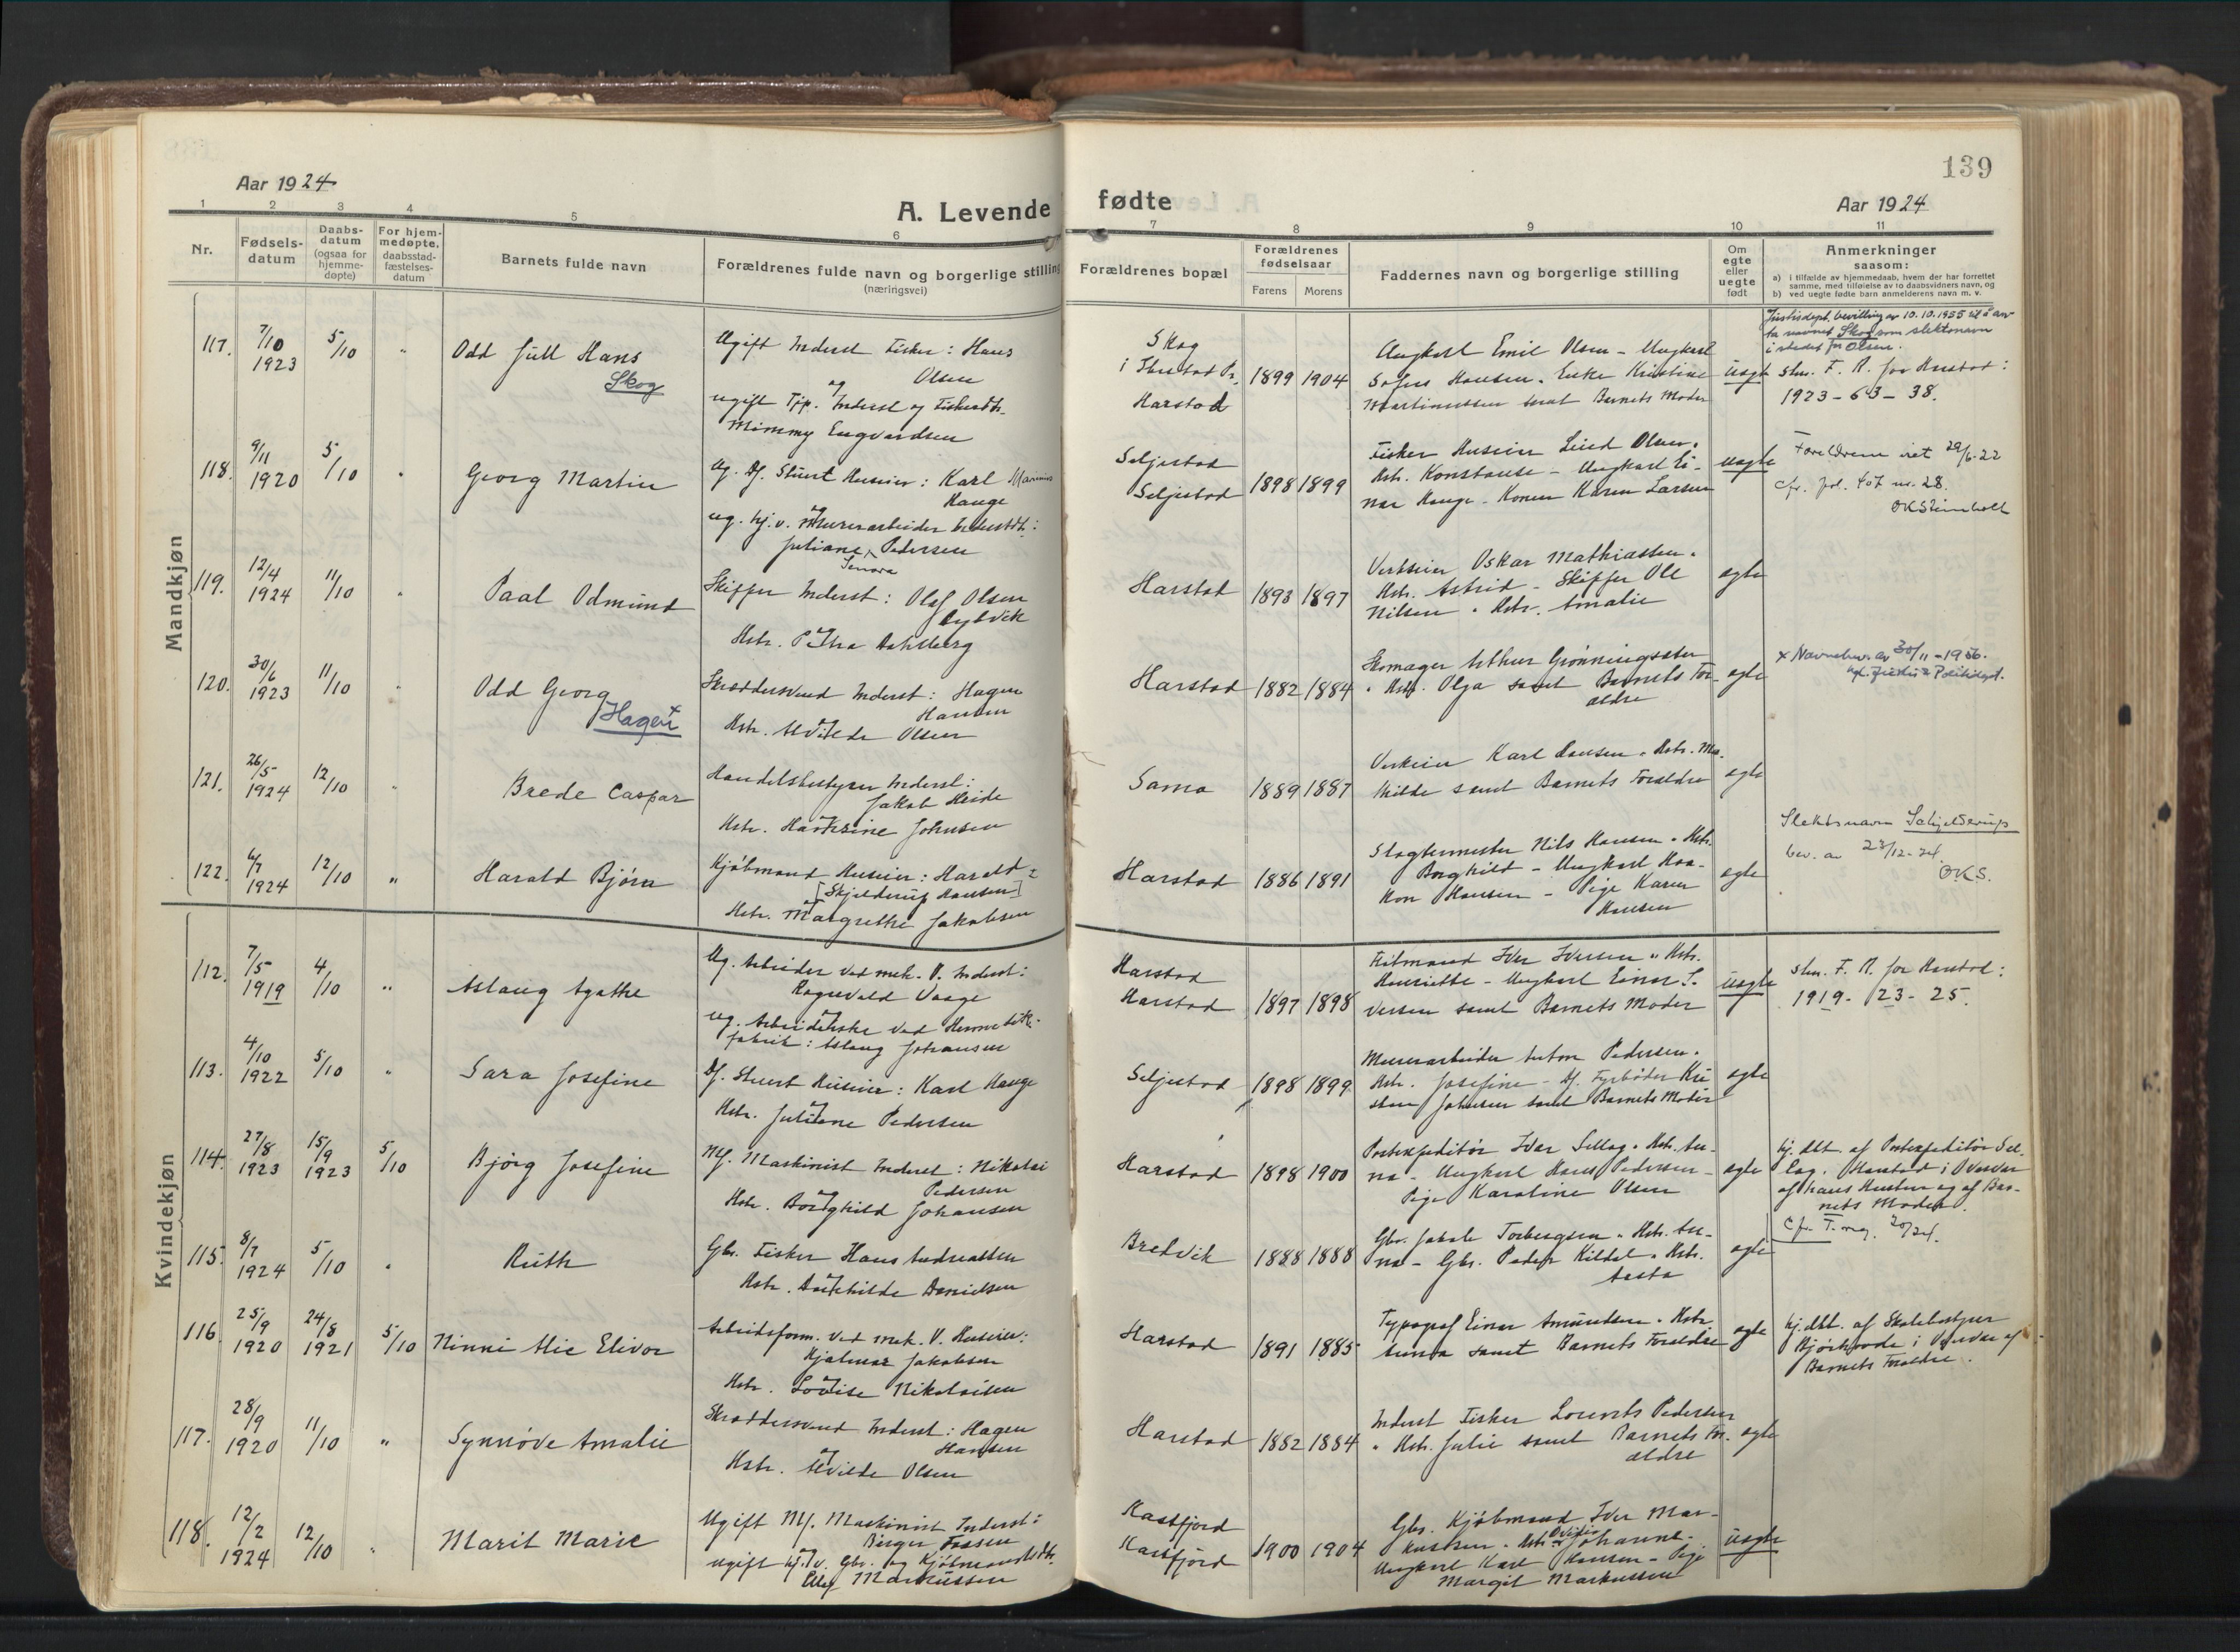 139
Aar 1924
A. Levende
fødte
Aar 1924
1
2
3
4
5
6
7
8
9
10
11
Nr.
Fødsels-
datum
Daabs-
datum
(ogsaa for
hjemme-
døpte)
For hjem-
medøpte,
daabsstad-
fæstelses-
datum
Barnets fulde navn
Forældrenes fulde navn og borgerlige stilling
(næringsvei)
Forældrenes bopæl
Forældrenes
fødselsaar
Farens
Morens
Faddernes navn og borgerlige stilling
Om
egte
eller
uegte
født
Anmerkninger
saasom:
a) i tilfælde av hjemmedaab, hvem der har forrettet
samme, med tilføielse av to daabsvidners navn, og
b) ved uegte fødte barn anmelderens navn m. v.
Mandkjøn
117.
7/10
1923
5/10
"
Odd Jull Hans
Skog
Ugift Inderst Fisker: Hans
Olsen
og
ugift Tjp. Inderst og Fiskerdtr.
Mimmy Engvardsen
Skog
Harstad
1899
1904
Ungkarl Emil Olsen - Ungkarl
Hansen. Enke Kristine
Martinussen samt Barnets Moder
uegte
Justisdept. bevilling av 10.10.1955 til å an-
ta navnet Skog som slektsnavn
i stedet for Olsen.
F. R. for Harstad:
1923 - 63 - 38.
118.
9/11
1920
5/10
"
Georg Martin
Ug. Df. Stuert Huseier: Karl Marinius
Hauge
og
ug. hj. v. Murerarbeider
Juliane Pedersen
Senora
Seljestad
Seljestad
1898
1899
Fisker Huseier Olsen.
Hstr. Konstanse - Ungkarl Ei-
nar Hauge - Konen Karen Larsen
uegte
Foreldrene viet 29/6-22
cfr. fol. 407 nr. 28.
OKSteinholt
119.
12/4
1924
11/10
"
Paal Odmund
Skipper Inderst: Olaf Olsen
og
Hstr. Petra Dahlberg
Harstad
1893
1897
Verkseier Oskar Mathiassen.
Hstr. Astrid - Skipper Ole
Nilsen. Hstr. Amalie
egte
120.
30/6
1923
11/10
"
Odd Georg
Hagen x
Skræddersvend Inderst: Hagen
Hansen
og
Hstr. Alvilde Olsen
Harstad
1882
1884
Skomager Arthur Grønningsæter
" Hstr. Olga samt Barnets For-
ældre
egte
x Navnebev. av 30/11-1956.
121.
26/5
1924
12/10
"
Brede Caspar
Handelsbestyrer Inderst:
Jakob Heide
og
Hstr. Johnsen
Sama
1889
1887
Verkeier Karl Hansen. Hstr. Ma-
thilde samt Barnets Forældre
egte
122.
6/7
1924
12/10
"
Harald Bjørn
Kjøbmand Huseier: Harald
[Skjelderup Hansen]
og
Hstr. Margrethe Jakobsen
Harstad
1886
1891
Slagtermester Nils Hansen. Hstr.
Borghild - Ungkarl Haa-
kon Hansen - Pige Karen
Hansen
egte
Slektsnavn Schjelderup
bev. av 23/12-24.
OKS.
Kvindekjøn
112.
7/5
1919
4/10
"
Aslaug Agathe
Ug. Arbeider ved mek. V. Inderst:
Ragnvald Vaage
og
ug. Arbeiderske ved Hermetik-
fabrik: Aslaug Johansen
Harstad
Harstad
1897
1898
Iver Iversen " Hstr.
Henriette - Ungkarl Einar I-
versen samt Barnets Moder
uegte
F. R. for Harstad:
1919 - 23 - 25.
113.
4/10
1922
5/10
"
Sara Josefine
Df. Stuert Huseier: Karl Hauge
og
Hstr. Juliane Pedersen
Seljestad
1898
1899
Murerarbeider Anton Pedersen.
Hstr. Josefine - Df. Fyrbøder Kri-
stian Johnsen samt Barnets Moder
egte
114.
27/8
1923
15/9
1923
5/10
Bjørg Josefine
Mf. Maskinist Inderst: Nikolai
Pedersen
og
Hstr. Borghild Johansen
Harstad
1898
1900
Postexpeditør Ivar Sellæg. Hstr. An-
na - Ungkarl Hans Pedersen -
Pige Karoline Olsen
egte
hj. dbt. af Postexpeditør Sel-
læg. Harstad i Overvær
af hans Hustru og af Bar-
nets Moder.
115.
8/7
1924
5/10
"
Ruth
Gbr. Fisker Hans Andreassen
og
Hstr. Danielsen
Bredvik
1888
1888
Gbr. Jakob Torbergsen. Hstr. An-
na - Gbr. Peder Kildal. Hstr.
Aasta
egte
116.
25/9
1920
24/8
1921
5/10
Ninni Alie Elivor
Arbeidsform. ved mek. V. Huseier:
Hjalmar Jakobsen
og
Hstr. Lovise Nikolaisen
Harstad
1891
1885
Typograf Einar Amundsen. Hstr.
Anna samt Barnets Forældre
egte
hj. dbt. af Skolebestyrer
i Overvær af
Barnets Forældre.
117.
28/9
1920
11/10
"
Synnøve Amalie
Skræddersvend Inderst: Hagen
Hansen
og
Hstr. Alvilde Olsen
Harstad
1882
1884
Inderst Fisker Lorents Pedersen
" Hstr. Julie samt Barnets For-
ældre
egte
118.
12/2
1924
12/10
"
Marit Marie
Ugift Mf. Maskinist Inderst:
Birger Fossen
ugift hj. v. Gbr. og Kjøbmandsdtr.
Markussen
Kasfjord
Kasfjord
1900
1904
Gbr. Kjøbmand Iver Mar-
kussen. Hstr. Johanne.
Ungkarl Karl Hansen - Pige
Margit Markussen
uegte